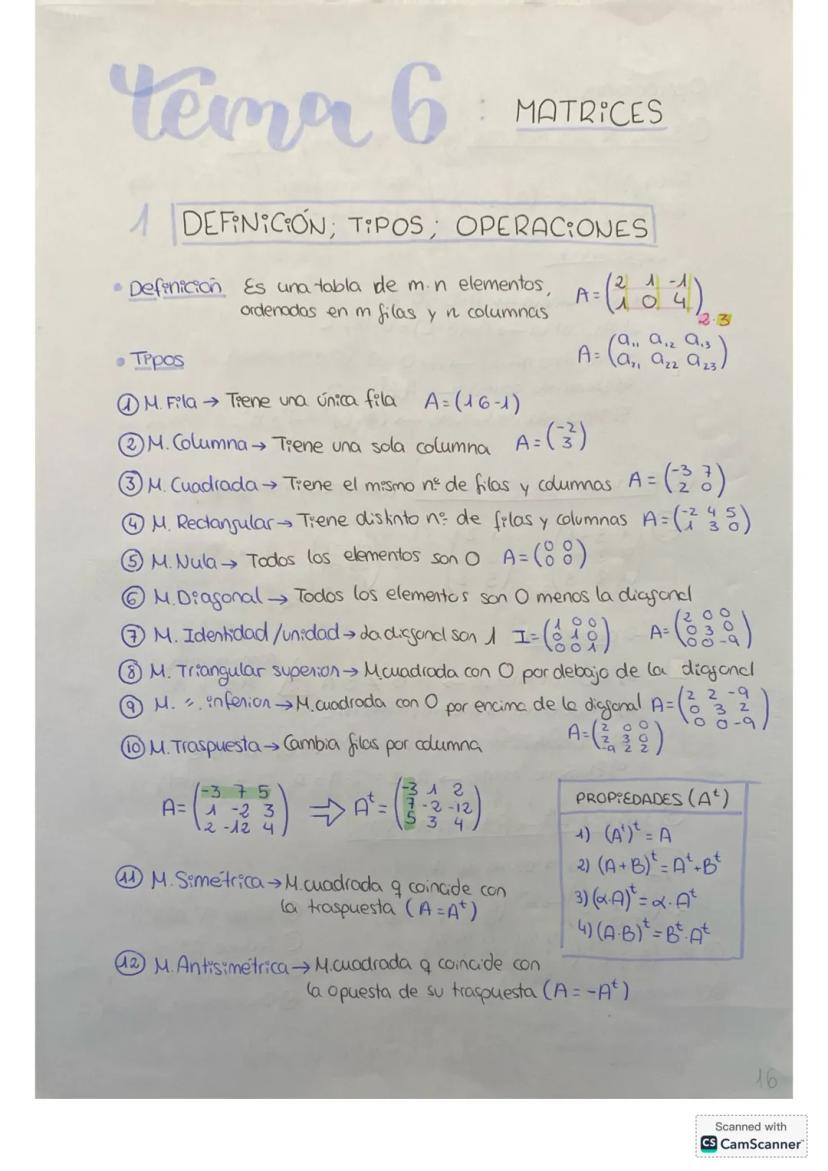 tema 6 : MATRICES
1 DEFINICIÓN; TIPOS; OPERACIONES
• Definición Es una tabla de m·n elementos,
ordenados en m filas y n columnas
A = (2 1 -1
1 0 4) 2·3
A = (a₁₁ a₁₂ a₁₃
a₂₁ a₂₂ a₂₃)
• Tipos
① M. Fila → Tiene una única fila A = (1 6 -1)
② M. Columna → Tiene una sola columna A = (-2
3)
③ M. Cuadrada → Tiene el mismo nº de filas y columnas A = (-3 7
2 0)
④ M. Rectangular → Tiene distinto nº de filas y columnas A = (-2 4 5
1 3 0)
⑤ M. Nula → Todos los elementos son 0 A = (0 0
0 0)
⑥ M. Diagonal → Todos los elementos son 0 menos la diagonal
⑦ M. Identidad/unidad → La diagonal son 1 I = (1 0 0
0 1 0
0 0 1)
A = (2 0 0
0 3 0
0 0 -9)
⑧ M. Triangular superior → M cuadrada con 0 por debajo de la diagonal
⑨ M. " . inferior → M. cuadrada con 0 por encima de la diagonal A = (2 2 -9
0 3 2
0 0 -9)
⑩ M. Traspuesta → Cambia filas por columna
A = (2 0 0
2 3 0
-9 2 2)
A = (-3 7 5
1 -2 3
2 -12 4)
⇒ Aᵗ = (-3 1 2
7 -2 -12
5 3 4)
PROPIEDADES (Aᵗ)
1) (Aᵗ)ᵗ = A
2) (A+B)ᵗ = Aᵗ+Bᵗ
3) (α·A)ᵗ = α·Aᵗ
4) (A·B)ᵗ = Bᵗ·Aᵗ
⑪ M. Simétrica → M. cuadrada q coincide con
la traspuesta (A = Aᵗ)
⑫ M. Antisimétrica → M. cuadrada q coincide con
la opuesta de su traspuesta (A = -Aᵗ)
16
Scanned with
CS CamScanner